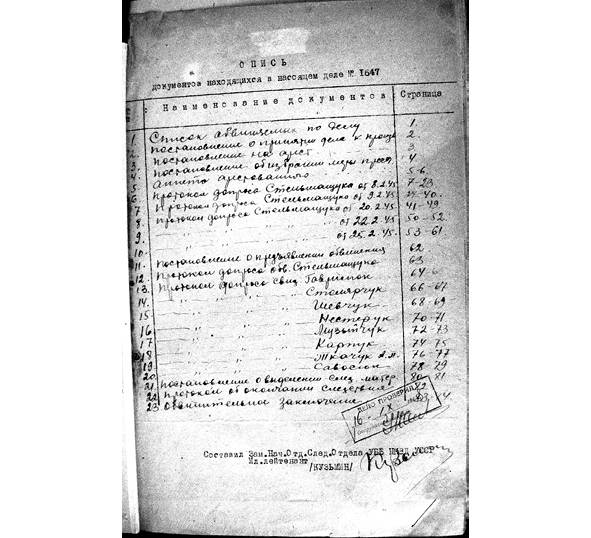 ОПИСЬ
документов находящихся в настоящем деле № 1647
Наименование документов Страница
1. Список обвиняемых по делу 1.
2. Постановление о принятии дела к произв 2
3. Постановление на арест 3
4. Постановление об избрании меры пресеч 4.
5. Анкета арестованного 5-6
6. Протокол допроса Стельмащука от 8.2.45 7-23
7. Протокол допроса Стельмащука от 9.2.45 -40
8. Протокол допроса Стельмащука от 20.2.45 41-49
9. " " " от 22.2.45. 50-52
10. " " " от 25.2.45. 53-61
11. Постановление о предъявлении обвинения 62
12. Протокол допроса обв. Стельмащука 63
13. Протокол допроса свид. 64
14. " " " Столярчук 66-67
15 " " " Шевчук 68-69
16 " " " Нестерук 70-71
17 " " " Музытчук 72-73
18 " " " Картук 74-75
19 " " " Ткачук А.М. 76-77
20. " " " Савосюк 78-79
21 Постановление о выделении след. матер. 80-81
22 Протокол об окончании следствия 82
23 Обвинительное заключение 83-84
ДЕЛО ПРОВЕРИЛ
16 IX
Составил Зам.Нач.Отд.След.Отдела УББ НКВД УССР
Мл.лейтенант
/КУЗЬМИН/